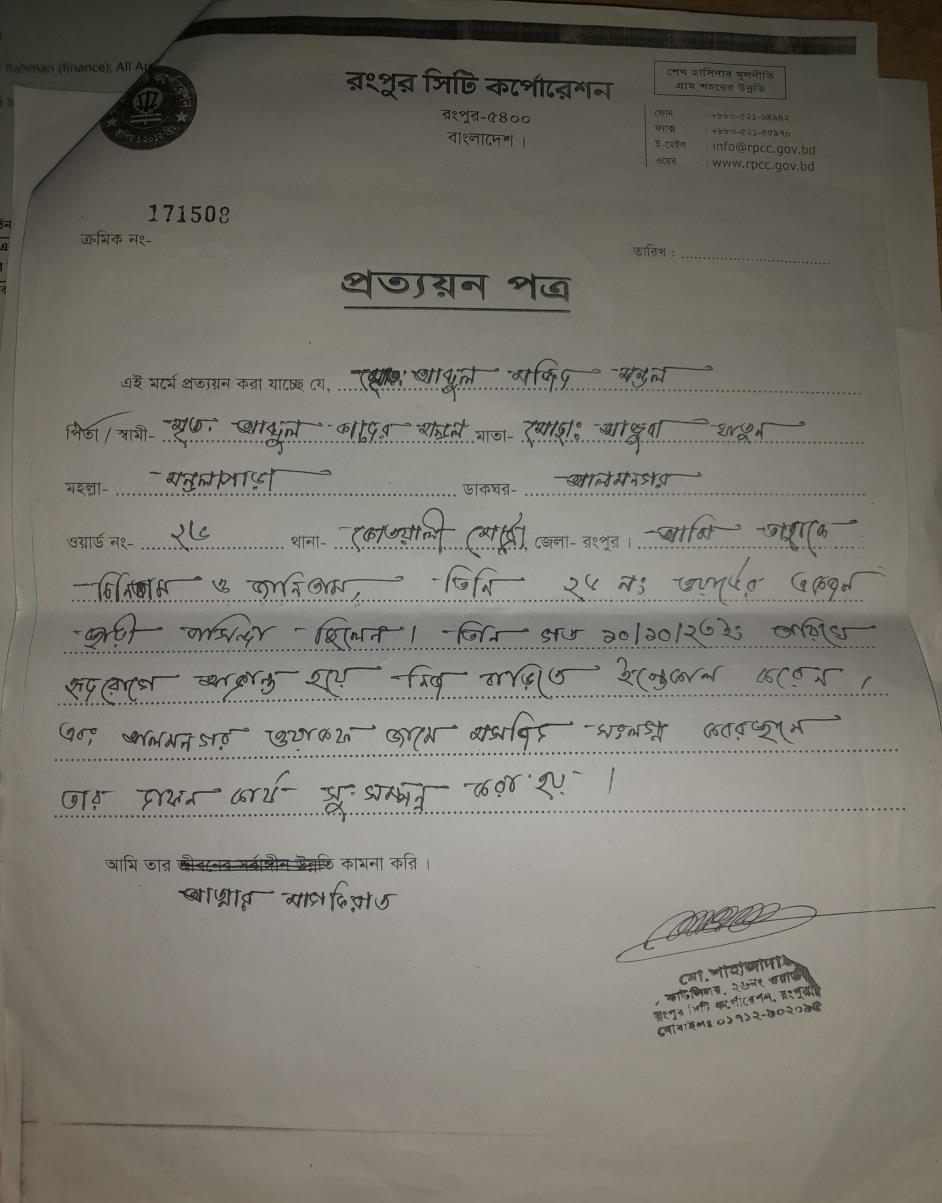 Rahman (finance); All Ap
রংপুর সিটি কর্পোরেশন
রংপুর-৫৪০০
বাংলাদেশ।
শেখ হাসিনার মূলনীতি
গ্রাম শহরের উন্নতি
ফোন :
ফ্যাক্স :
ই-মেইল : info@rpcc.gov.bd
ওয়েব : www.rpcc.gov.bd
171508
ক্রমিক নং-
তারিখ :
প্রত্যয়ন পত্র
এই মর্মে প্রত্যয়ন করা যাচ্ছে যে, মোঃ আব্দুল মজিদ মন্ডল
পিতা / স্বামী- মৃত: আব্দুল কাদের মন্ডল মাতা- মোছাঃ খাতুন
মহল্লা- মন্ডলপাড়া ডাকঘর- আলমনগর
ওয়ার্ড নং- থানা- কোতয়ালী মেট্রো, জেলা- রংপুর। আমি তাহাকে
চিনিতাম ও জানিতাম, তিনি নং ওয়ার্ডের একজন
স্থায়ী বাসিন্দা ছিলেন। তিনি গত ১০/১০/২৩ইং তারিখে
হৃদরোগে আক্রান্ত হয়ে নিজ বাড়িতে ইন্তেকাল করেন,
এবং আলমনগর ওয়াকফ জামে মসজিদ সংলগ্ন কবরস্থানে
তার দাফন কার্য সু-সম্পন্ন করা হয়।
আমি তার জীবনের সর্বাঙ্গীন উন্নতি কামনা করি।
আত্মার মাগফিরাত
কাউন্সিলর, ২৬নং ওয়ার্ড
রংপুর সিটি কর্পোরেশন, রংপুর।